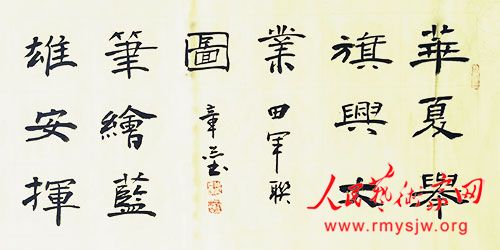 華夏舉
旗興大
業
田軍联
雄安揮
筆繪藍
圖
章
人民藝術家网
www.rmysjw.org